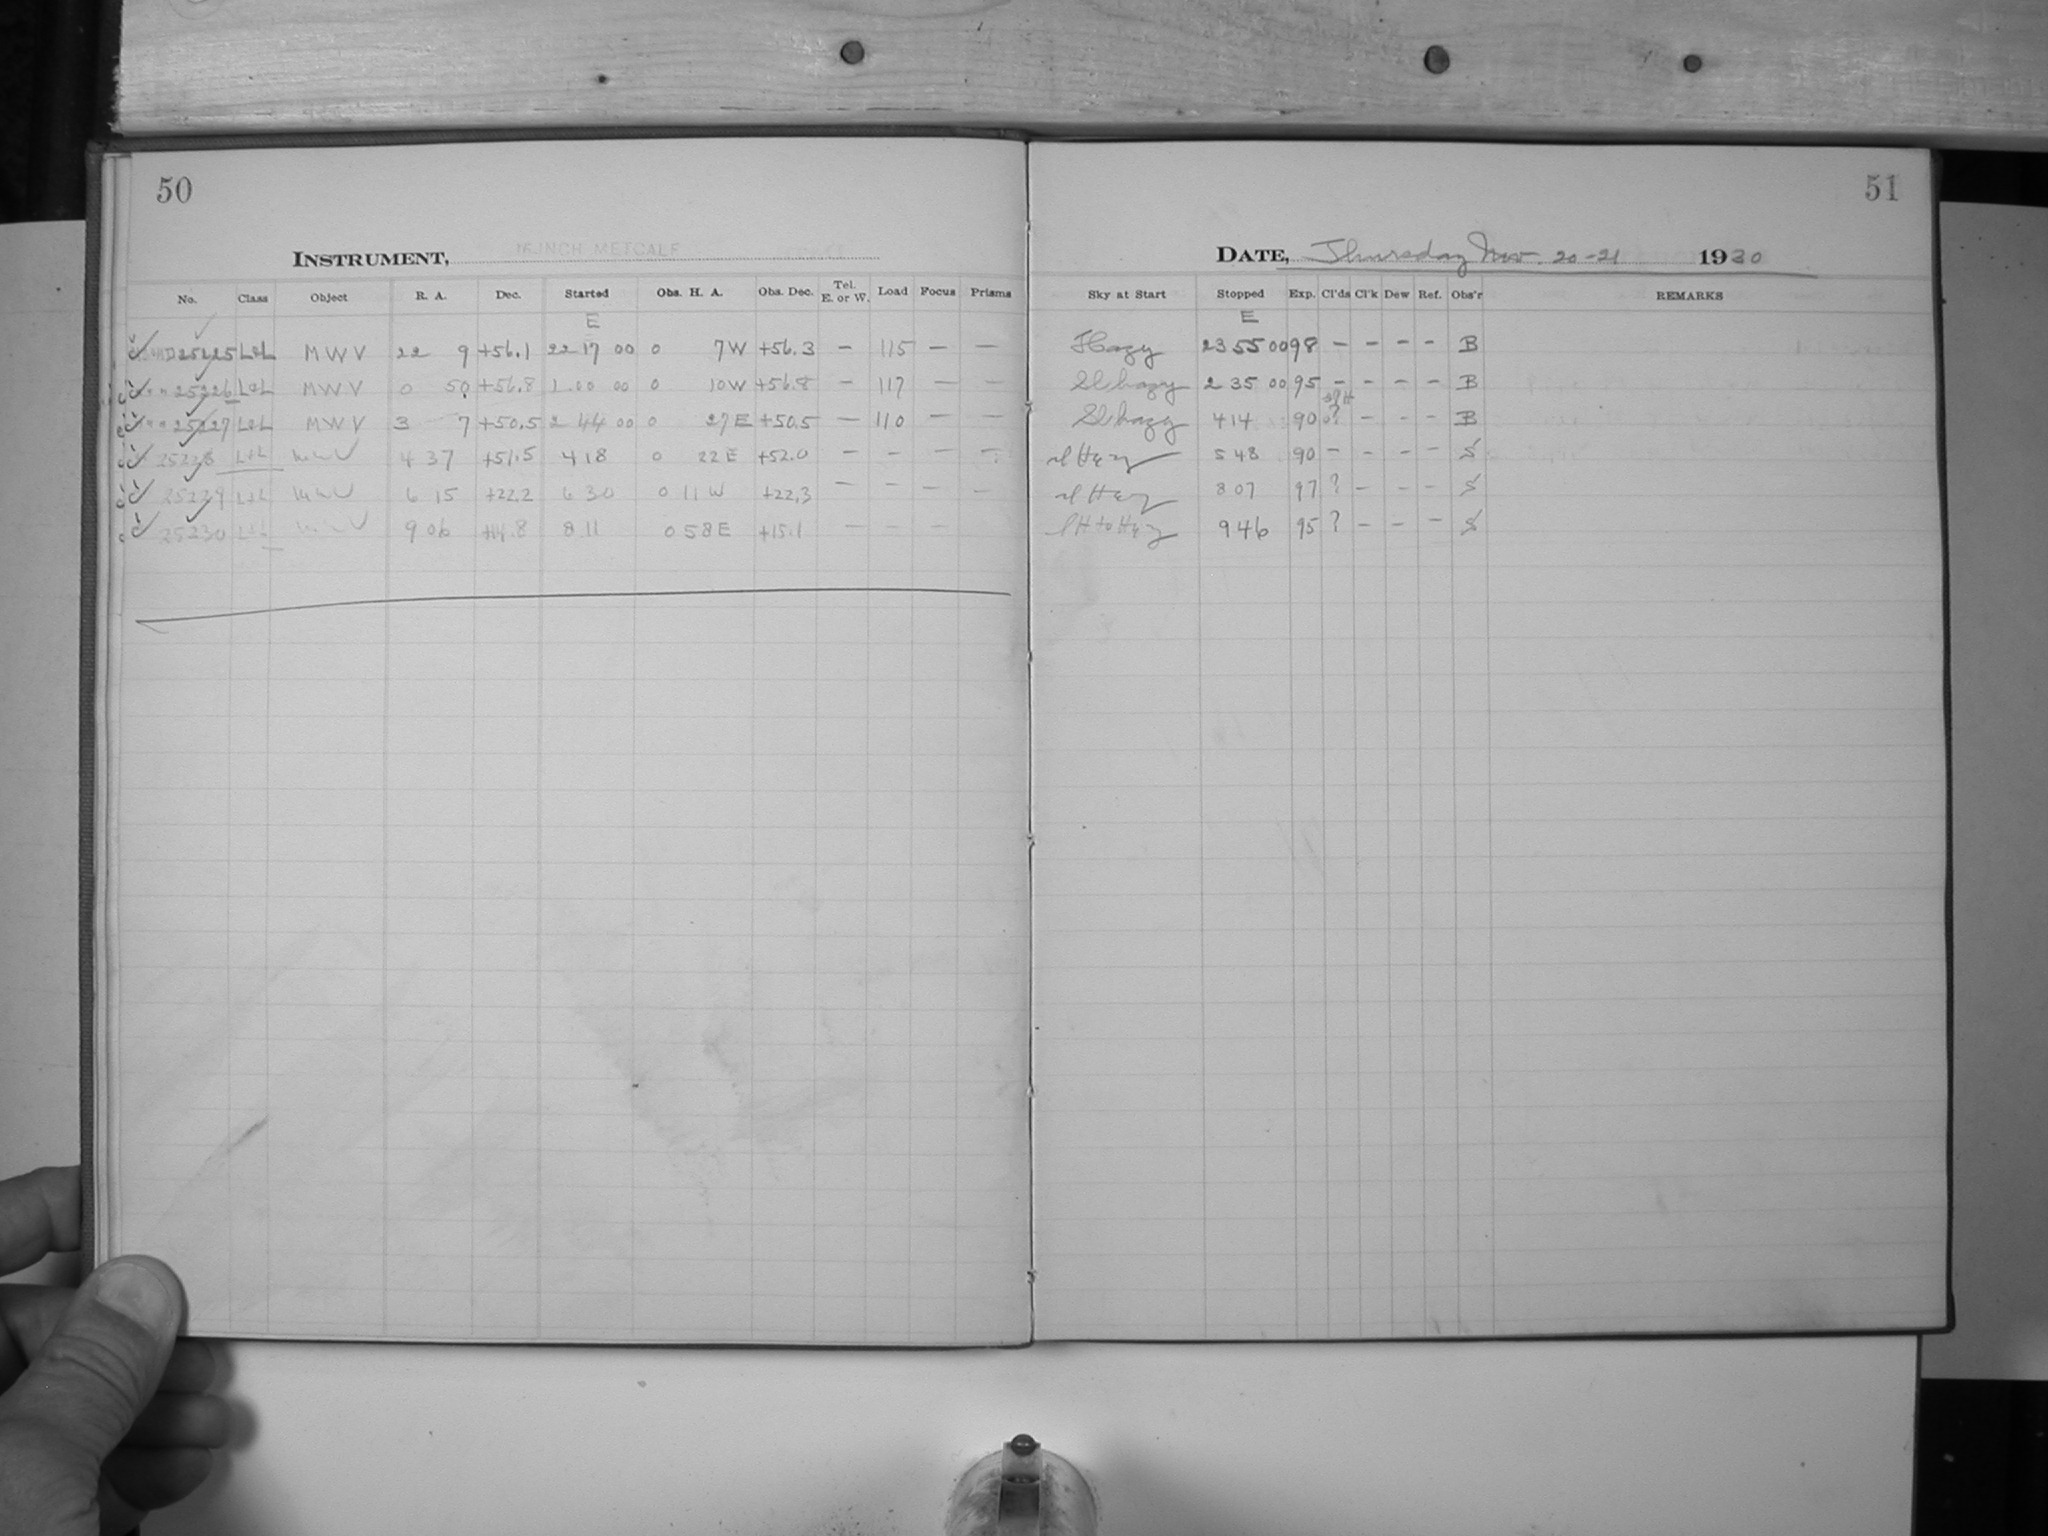 50
INSTRUMENT, 16 INCH METCALF
No. Class Object R. A. Dec. Started Obs. H. A. Obs. Dec. Tel. E. or W. Load Focus Prisms
E
25225 L&L MWV 22 9 +56.1 22 17 00 0 7W +56.3 — 115 — —
25226 L&L MWV 0 50 +56.8 1 00 00 0 10W +56.8 — 117 — —
25227 L&L MWV 3 7 +50.5 2 44 00 0 27E +50.5 — 110 — —
25228 L+L MWV 4 37 +51.5 4 18 0 22E +52.0 — — — —
25229 L+L MWV 6 15 +22.2 6 30 0 11W +22.3 — — — —
25230 L+L MWV 9 06 +14.8 8 11 0 58E +15.1 — — —
51
DATE, Thursday Nov. 20-21 1930
Sky at Start Stopped Exp. Cl'ds Cl'k Dew Ref. Obs'r REMARKS
E
Hazy 23 55 00 98 — — — — B
Sl hazy 2 35 00 95 — — — — B
Sl hazy 4 14 90 ? — — — B
sl Hazy 5 48 90 — — — — S
sl Hazy 8 07 97 ? — — — S
sl H to Hazy 9 46 95 ? — — — S